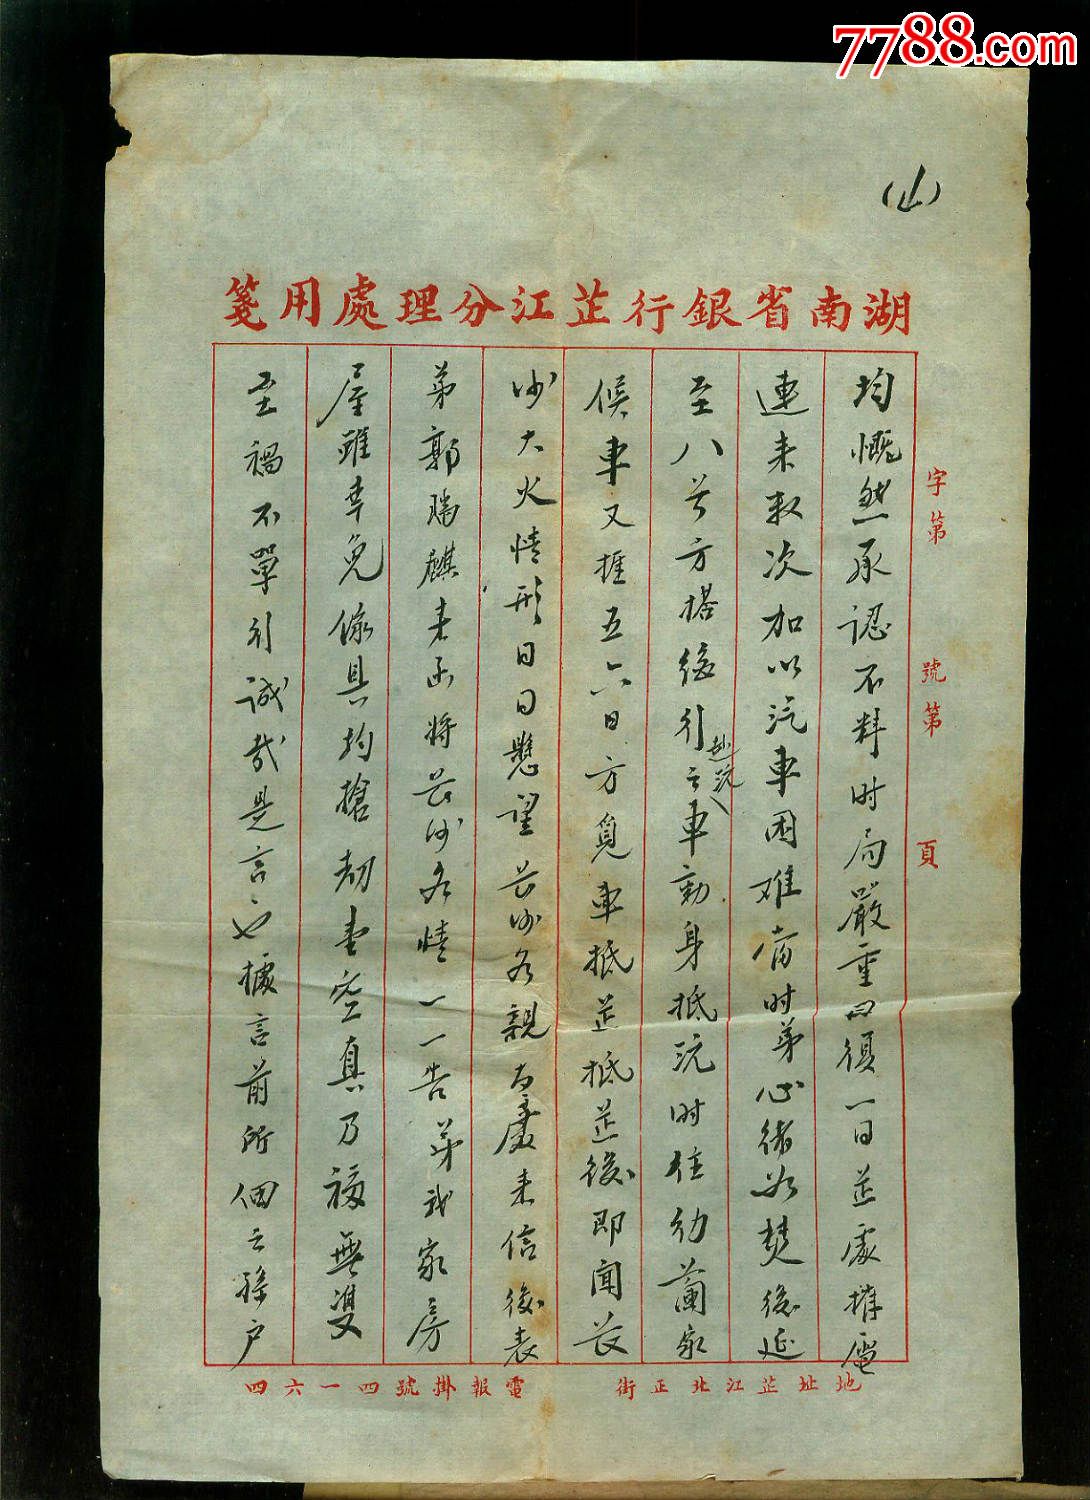 7788.com
(山)
湖南省銀行芷江分理處用箋
字第 號第 頁
均慨然承認不料时局嚴重回復一日芷處催電
連来数次加以汽車困难當时弟心緒如焚後延
至八号方搭後引赴沅之車動身抵沅时住幼蘭家
候車又捱五六日方覓車抵芷抵芷後即聞长
沙大火情形日日懸望长沙各親友處来信後表
弟郭瑞麒来函将长沙各情一一告弟我家房
屋雖幸免傢具均搶刼一空真乃福無雙
至禍不單行誠哉是言也據言前所佃之孫户
地址芷江北正街
電報掛號四一六四